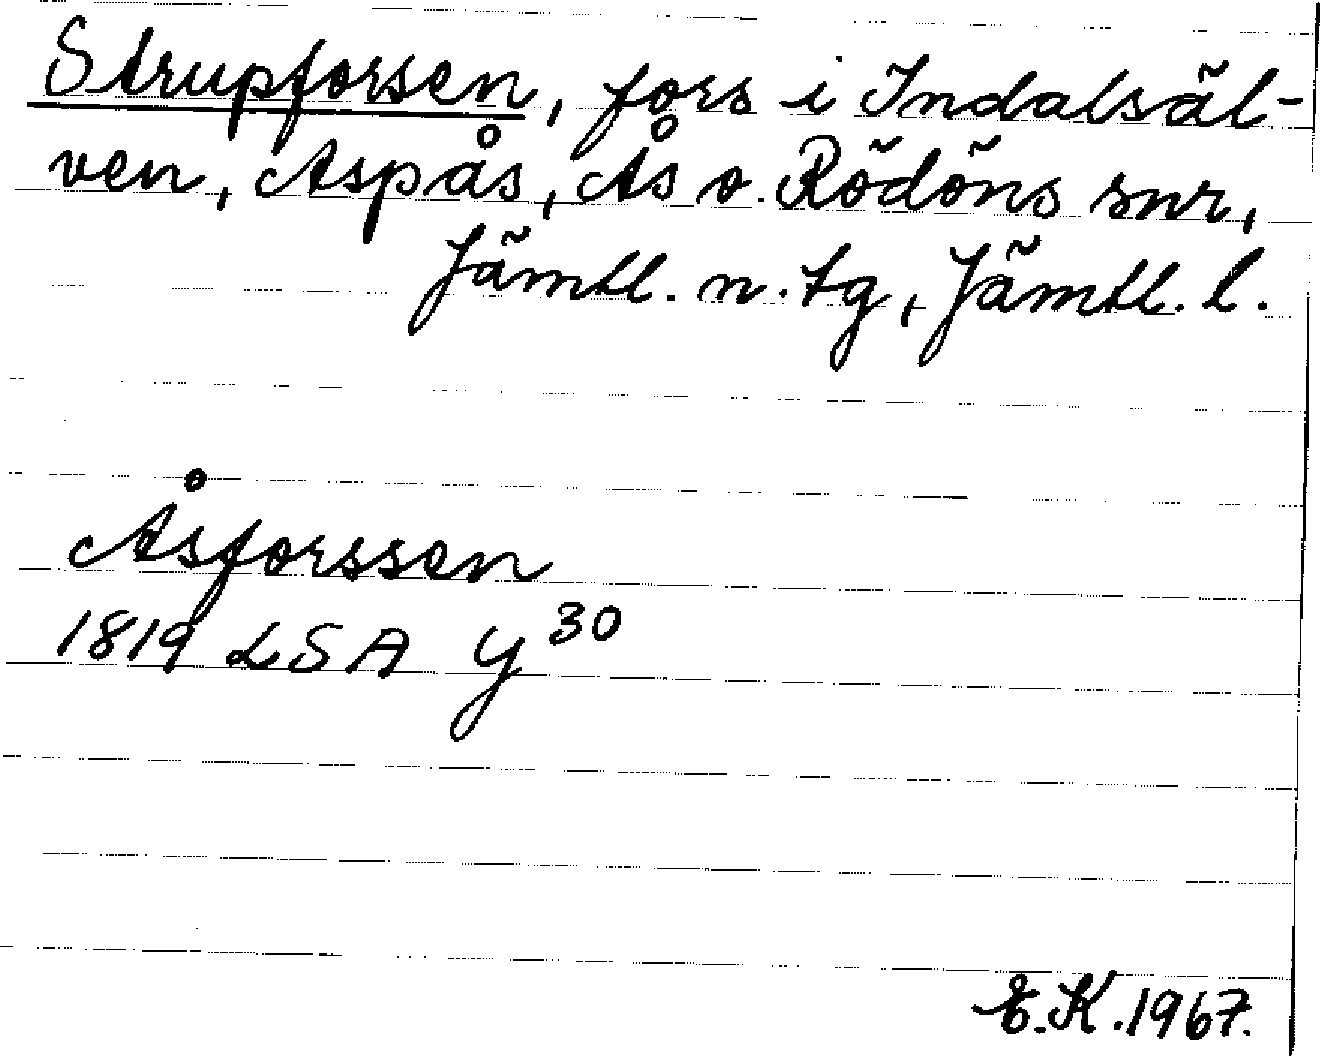 Strupforsen, fors i Indalsäl-
ven, Aspås, Ås o. Rödöns snr,
Jämtl. n. tg, Jämtl. l.
Åsforssen
1819 LSA Y 30
E.K. 1967.